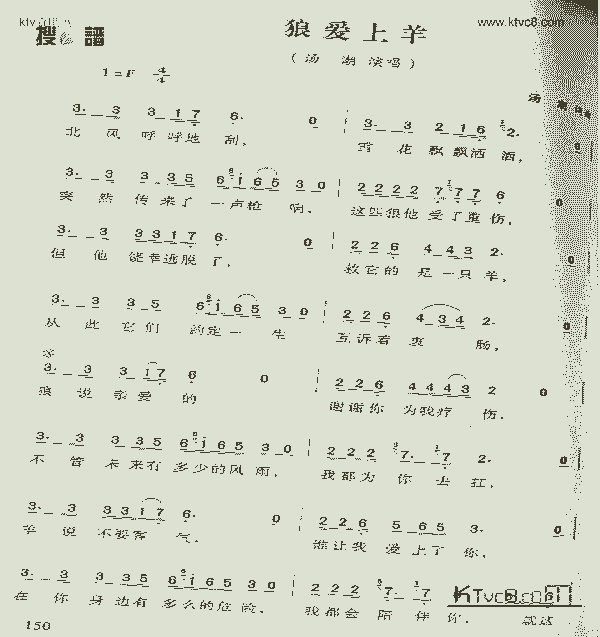 ktvc8.com
www.ktvc8.com
搜谱
狼爱上羊
(汤 潮 演唱)
1=F 4/4
汤 潮
3· 3 3 1 7 6· 0 3· 3 2 1 6 2· 0
北 风 呼呼地 刮, 雪 花 飘飘洒 洒,
3· 3 3 3 5 6 1 6 5 3 0 2 2 2 2 7 7 7 6 0
突 然 传来了 一声枪 响, 这匹狼他 受了重 伤,
3· 3 3 3 1 7 6· 0 2 2 6 4 4 3 2· 0
但 他 侥幸逃脱 了, 救它的 是一只 羊,
3· 3 3 5 6 1 6 5 3 0 2 2 6 4 3 4 2· 0
从 此 它们 约定一 生 互诉着 衷 肠,
3· 3 3 1 7 6 0 2 2 6 4 4 4 3 2 0
狼 说 亲爱 的 谢谢你 为我疗 伤,
3· 3 3 3 5 6 6 1 6 5 3 0 2 2 2 7· 7 2· 0
不 管 未来有 多少的风 雨, 我都为 你 去 扛,
3· 3 3 3 1 7 6· 0 2 2 6 5 6 5 3· 0
羊 说 不要客 气, 谁让我 爱上了 你,
3· 3 3 3 5 6 6 1 6 5 3 0 2 2 2 7· 7
在 你 身边有 多么的危 险, 我都会 陪 伴 你, 就这
KTvc8.com
150